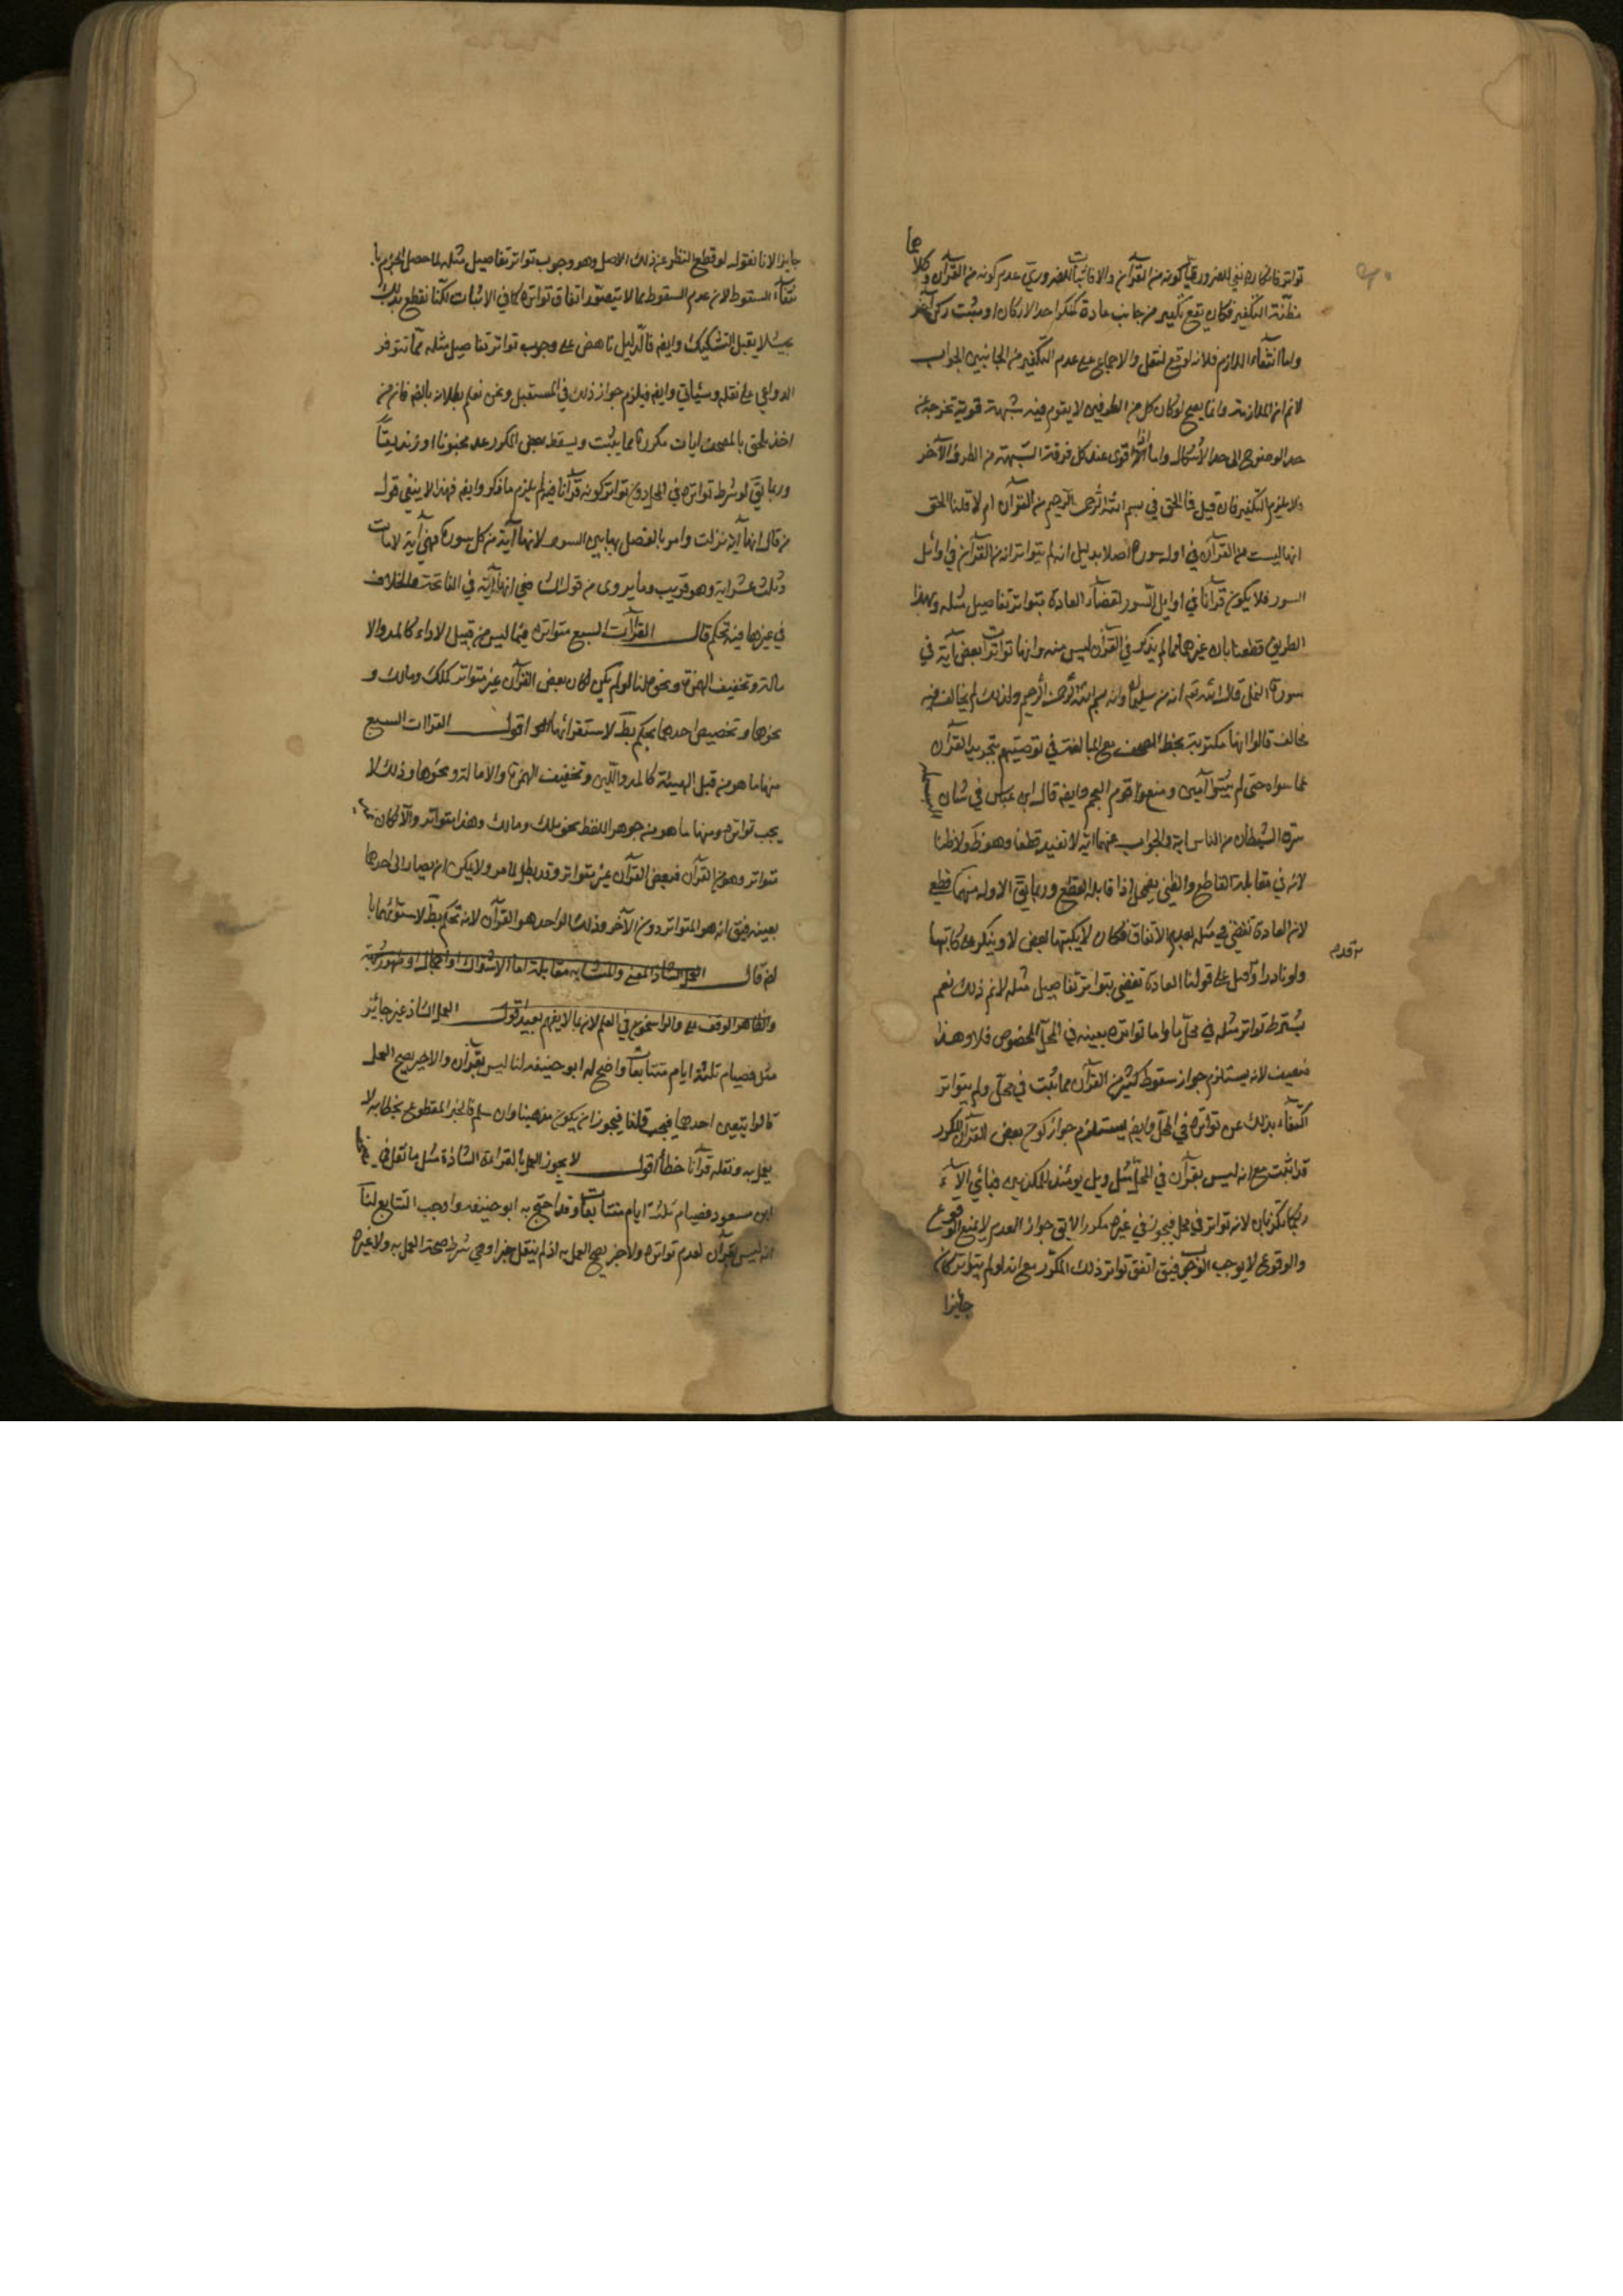 ٩٠
تواتر فانكاره نفي للضروري كونه من القرآن والا فاثبات للضروري عدم كونه من القرآن وكلاهما
مظنة التكفير فكان يقع تكفير من جانب عادة كمنكر احد الاركان او مثبت ركن آخر
واما انتفاء اللازم فلانه لو وقع لنقل والاجماع على عدم التكفير من الجانبين الجواب
لانم الملازمة وانما يصح لو كان كل من الطرفين لا يقوم فيه شبهة قوية تخرجه عن
حد الوضوح الى حد الاشكال واما اذا قوى عند كل فرقة الشبهة من الطرف الآخر
فلا يلزم التكفير فان قيل فما الحق في بسم الله الرحمن الرحيم من القرآن ام لا قلنا الحق
انها ليست من القرآن في اول سورة اصلا بدليل انه لم يتواتر انه من القرآن في اوائل
السور فلا يكون قرآنا في اوايل السور لقضاء العادة بتواتر تفاصيل مثله وبهذا
الطريق قطعنا بان غيرها مما لم يذكر في القرآن ليس منه وانها تواترت بعض آية في
سورة النمل قال الله تعه انه من سليمان وانه بسم الله الرحمن الرحيم ولذلك لم يخالف فيه
مخالف قالوا انها مكتوبة بخط المصحف مع المبالغة في توصيتهم بتجريد القرآن
عما سواه حتى لم يثبتوا آمين ومنع قوم العجم وايضه قال ابن عباس في شان
سرق الشيطان من الناس اية والجواب عنهما انه لا تفيد قطعا وهو ظ ولا ظنا
لانه في مقابلة القاطع والظني يضمحل اذا قابله القطع وربما يق الاول منهما قطعي
لان العادة تقضي في مثله بعدم الاتفاق فكان لا يكتبها بعض او ينكر على كاتبها
ولو نادرا وقيل على قولنا العادة تقضي بتواتر تفاصيل مثله لانم ذلك نعم
يشترط تواتر مثله في محل ما واما تواتره بعينه في المحل المخصوص فلا وهذا
ضعيف لانه يستلزم جواز سقوط كثير من القرآن مما يثبت في محل ولم يتواتر
اكتفاء بذلك عن تواتره في المحل وايضه يستلزم جواز كون بعض القرآن المكرر
قد اثبت مع انه ليس بقرآن في المحل مثل ويل يومئذ للمكذبين فبأي الآء
ربكما تكذبان لانه تواتر في محل فيجوز في غيره مكررا لا يق جواز العدم لا يمنع الوقوع
والوقوع لا يوجب الوجوب فيق اتفق تواتر ذلك المكرر مع انه لو لم يتواتر كان
جائزا
جايزا لانا نقول لو قطع النظر عن ذلك الاصل وهو وجوب تواتر تفاصيل مثله لما حصل الجزم با
نتفاء السقوط لان عدم السقوط مما لا يتصور اتفاق تواتره كما في الاثبات لكنا نقطع بذلك
بحيث لا يقبل التشكيك وايضه فالدليل ناهض على وجوب تواتر تفاصيل مثله مما تتوفر
الدواعي على نقله وسيأتي وايضه فيلزم جواز ذلك في المستقبل ونحن نعلم بطلانه بالضه فان من
اخذ يلحق بالمصحف ايات مكررة مما يثبت ويسقط بعض المكرر عد مجنونا او زنديقا
وربما يق لو شرط تواتره في المحل دون تواتر كونه قرآنا فيه لم يلزم ما ذكر وايضه فهذا لا ينفي قول
من قال انها آية نزلت وامر بالفصل بها بين السور لانها آية من كل سورة فهي آية لا مائة
وثلث عشر اية وهو قريب وما يروى من قول الشافعي انها آية في الفاتحة والخلاف
في غيرها فيه تحكم قال القرآت السبع متواترة فيما ليس من قبيل الاداء كالمد والا
مالة وتخفيف الهمزة ونحوها لنا لو لم يكن لكان بعض القرآن غير متواتر كملك ومالك و
نحوها وتخصيص احدهما تحكم بط لاستوائهما اقول القراات السبع
منها ما هو من قبل الهيئة كالمد واللين وتخفيف الهمزة والامالة ونحوها وذلك لا
يجب تواتره ومنها ما هو من جوهر اللفظ نحو ملك ومالك وهذا متواتر والا لكان غير
متواتر وهو من القرآن فبعض القرآن غير متواتر وقد بطل لما مر ولا يمكن ان يصار الى احدهما
بعينه فيق انه هو المتواتر دون الآخر وذلك الواحد هو القرآن لانه تحكم بط لاستوائهما با
لضه قال العمل بالشاذ
والظاهر الوقف على والراسخون في العلم لان بما لا يفهم بعيد اقول العمل بالشاذ غير جائز
مثل فصيام ثلثة ايام متتابعات واحتج له ابو حنيفه لنا ليس بقرآن ولا خبر يصح العمل
قالوا يتعين احدهما فيجب قلنا فيجوز ان يكون مذهبنا وان سلم فالخبر المقطوع بخطائه لا
يعمل به ونقله قرآنا خطأ اقول لا يجوز العمل بالقراءة الشاذة مثل ما نقل في
ابن مسعود فصيام ثلثة ايام متتابعات وقد احتج به ابو حنيفه واوجب التتابع لنا
انه ليس بقرآن لعدم تواتره ولا خبر يصح العمل به اذ لم ينقل خبرا وهي شرط صحة العمل به ولا غيره